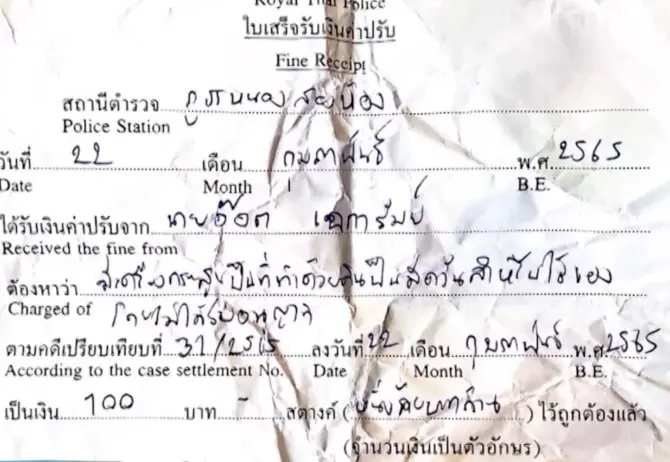 Royal Thai Police
ใบเสร็จรับเงินค่าปรับ
Fine Receipt
สถานีตำรวจ ภูธรหนองสองห้อง
Police Station
วันที่ 22 เดือน กุมภาพันธ์ พ.ศ. 2565
Date Month B.E.
ได้รับเงินค่าปรับจาก นาย
Received the fine from
ต้องหาว่า มีเครื่องกระสุนปืนที่ทำด้วยดินปืนมีควันสำหรับใช้เอง
Charged of โดยไม่ได้รับอนุญาต
ตามคดีเปรียบเทียบที่ 31/2565 ลงวันที่ 22 เดือน กุมภาพันธ์ พ.ศ. 2565
According to the case settlement No. Date Month B.E.
เป็นเงิน 100 บาท - สตางค์ (หนึ่งร้อยบาทถ้วน) ไว้ถูกต้องแล้ว
(จำนวนเงินเป็นตัวอักษร)